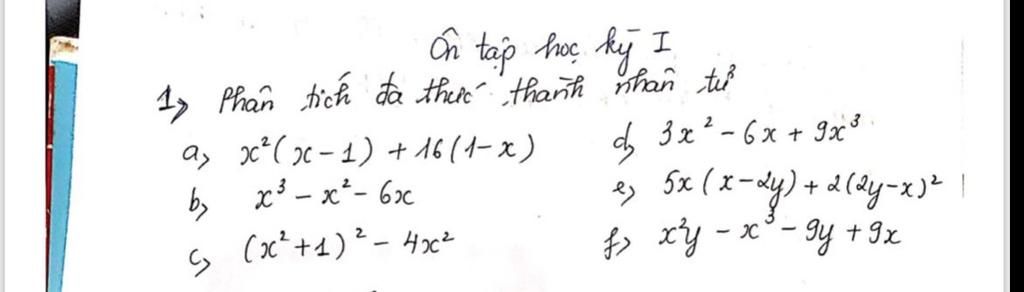 Ôn tập học kỳ I
1, Phân tích đa thức thành nhân tử
a, x²(x-1) + 16(1-x)
b, x³ - x² - 6x
c, (x²+1)² - 4x²
d, 3x² - 6x + 9x³
e, 5x(x-2y) + 2(2y-x)²
f, x²y - x³ - 9y + 9x